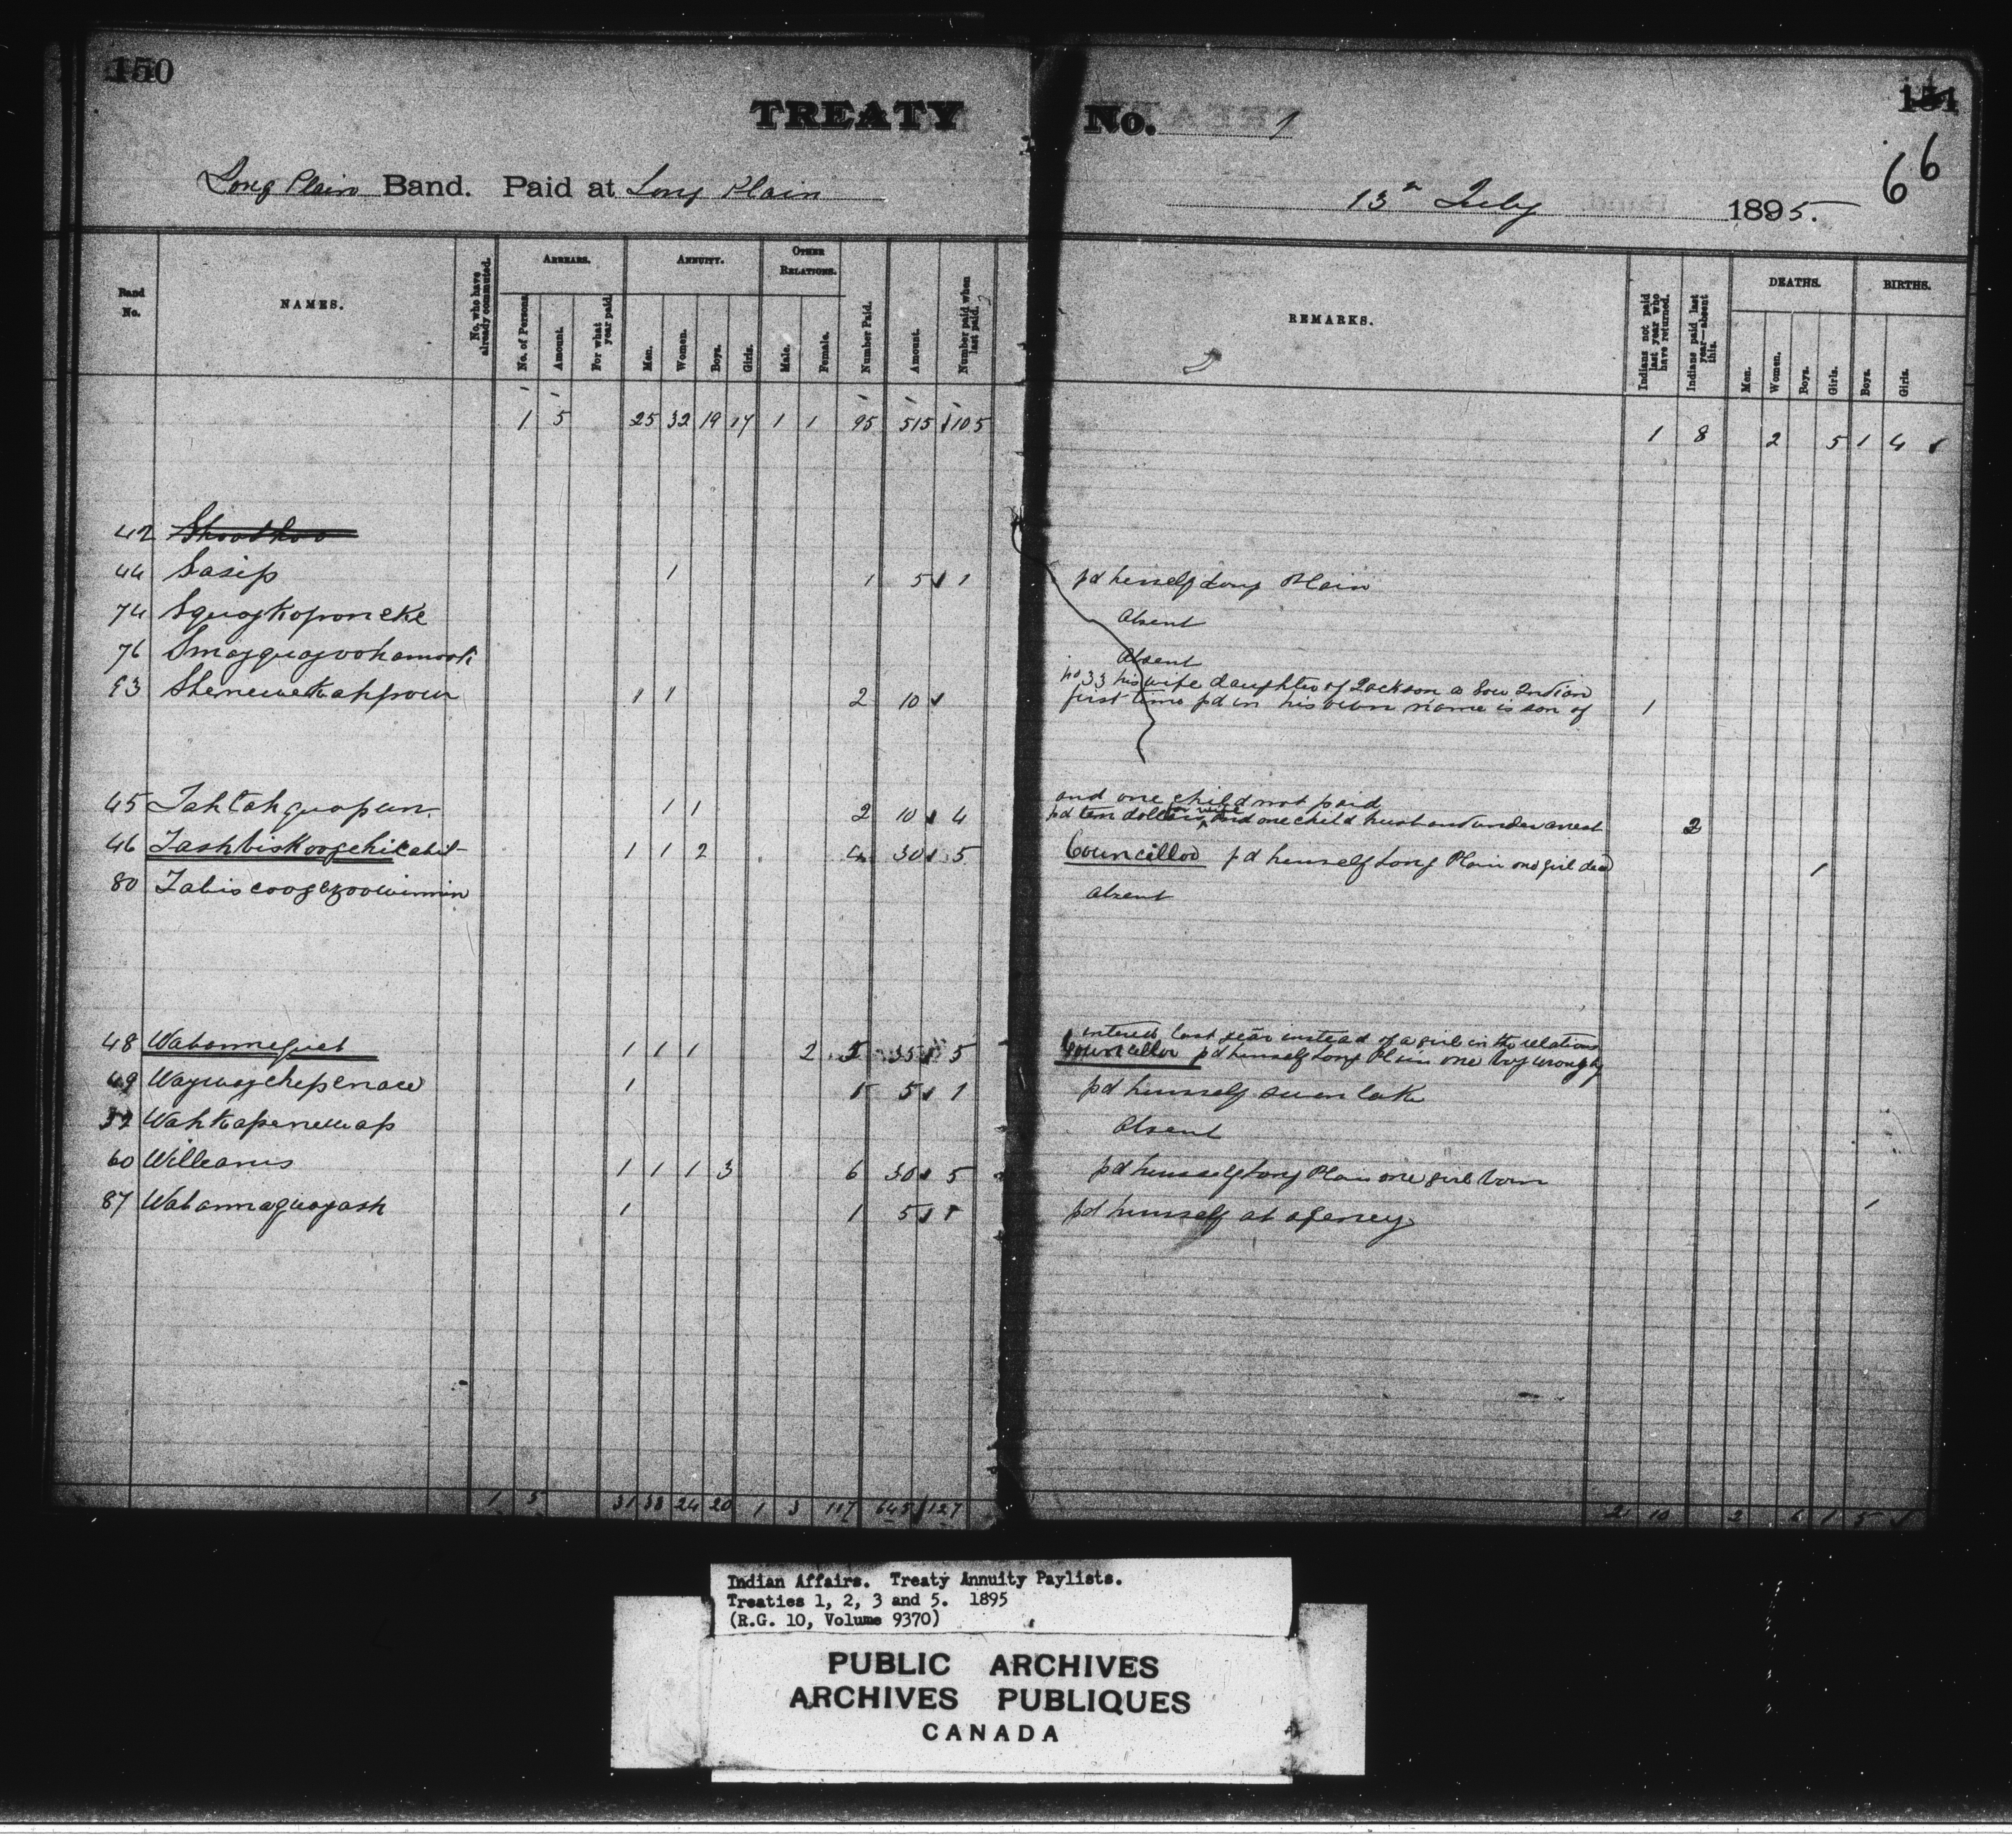 150
151
66
TREATY No. 1
Long Plain Band. Paid at Long Plain
13th July 1895.
Band No.
NAMES.
No. who have already commuted.
ARREARS.
No. of Persons.
Amount.
For what year paid.
ANNUITY.
Men.
Women.
Boys.
Girls.
OTHER RELATIONS.
Male.
Female.
Number Paid.
Amount.
Number paid when last paid.
REMARKS.
Indians not paid last year who have returned.
Indians paid last year—absent this.
DEATHS.
Men.
Women.
Boys.
Girls.
BIRTHS.
Boys.
Girls.
1 5 25 32 19 17 1 1 95 515 105 1 8 2 5 1 4
42
44 Sasip 1 1 5 1 pd herself Long Plain
74 Squaykoponeke Absent
76 Absent
93 1 1 2 10 no 33 his wife daughter of Jackson a Sou Indian
first time pd in his own name is son of 1
and one child not paid
45 Tahtahquapun. 1 1 2 10 4 pd ten dollars for wife and one child husband under arrest 2
46 1 1 2 4 30 5 Councillor pd himself Long Plain one girl dead 1
80 absent
entered last year instead of a girl in the relations
48 Wabannequet 1 1 1 2 5 35 5 Councillor pd himself Long Plain one boy wrongly
49 Waywaychepenace 1 1 5 1 pd himself Swan Lake
Wahkapenewap Absent
60 Williams 1 1 1 3 6 30 5 pd himself Long Plain one girl born
87 Wabannaquayash 1 1 5 1 pd himself at agency 1
1 5 31 38 24 20 1 3 117 645 127 2 10 2 6 1 5
Indian Affairs. Treaty Annuity Paylists.
Treaties 1, 2, 3 and 5. 1895
(R.G. 10, Volume 9370)
PUBLIC ARCHIVES
ARCHIVES PUBLIQUES
CANADA